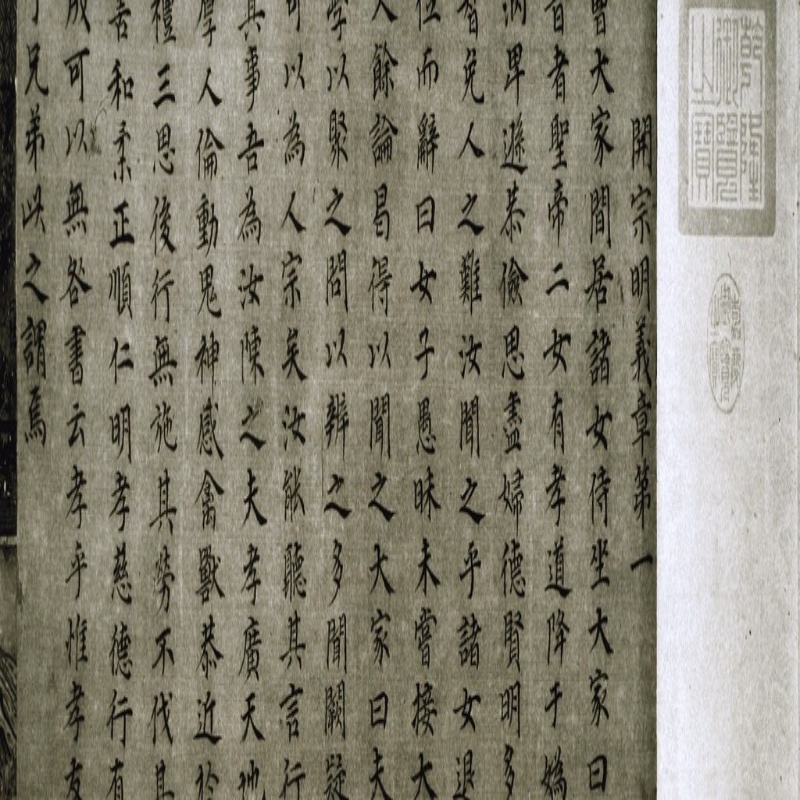 乾隆御覽之寶
開宗明義章第一
曹大家間居諸女侍坐大家曰
昔者聖帝二女有孝道降于媯
汭卑遜恭儉思盡婦德賢明多
智免人之難汝聞之乎諸女退
位而辭曰女子愚昧未嘗接大
人餘論曷得以聞之大家曰夫
學以聚之問以辨之多聞闕疑
可以為人宗矣汝能聽其言行
其事吾為汝陳之夫孝廣天地
厚人倫動鬼神感禽獸恭近於
禮三思後行無施其勞不伐其
善和柔正順仁明孝慈德行有
成可以無咎書云孝乎惟孝友
于兄弟此之謂焉